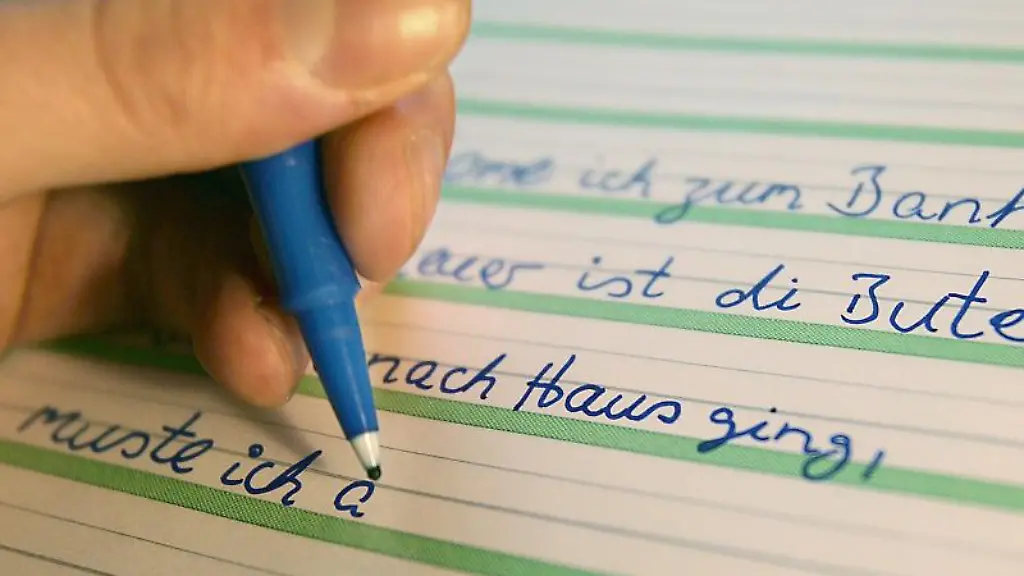 ich zum Bank
ist di Bute
nach Haus ging,
muste ich a